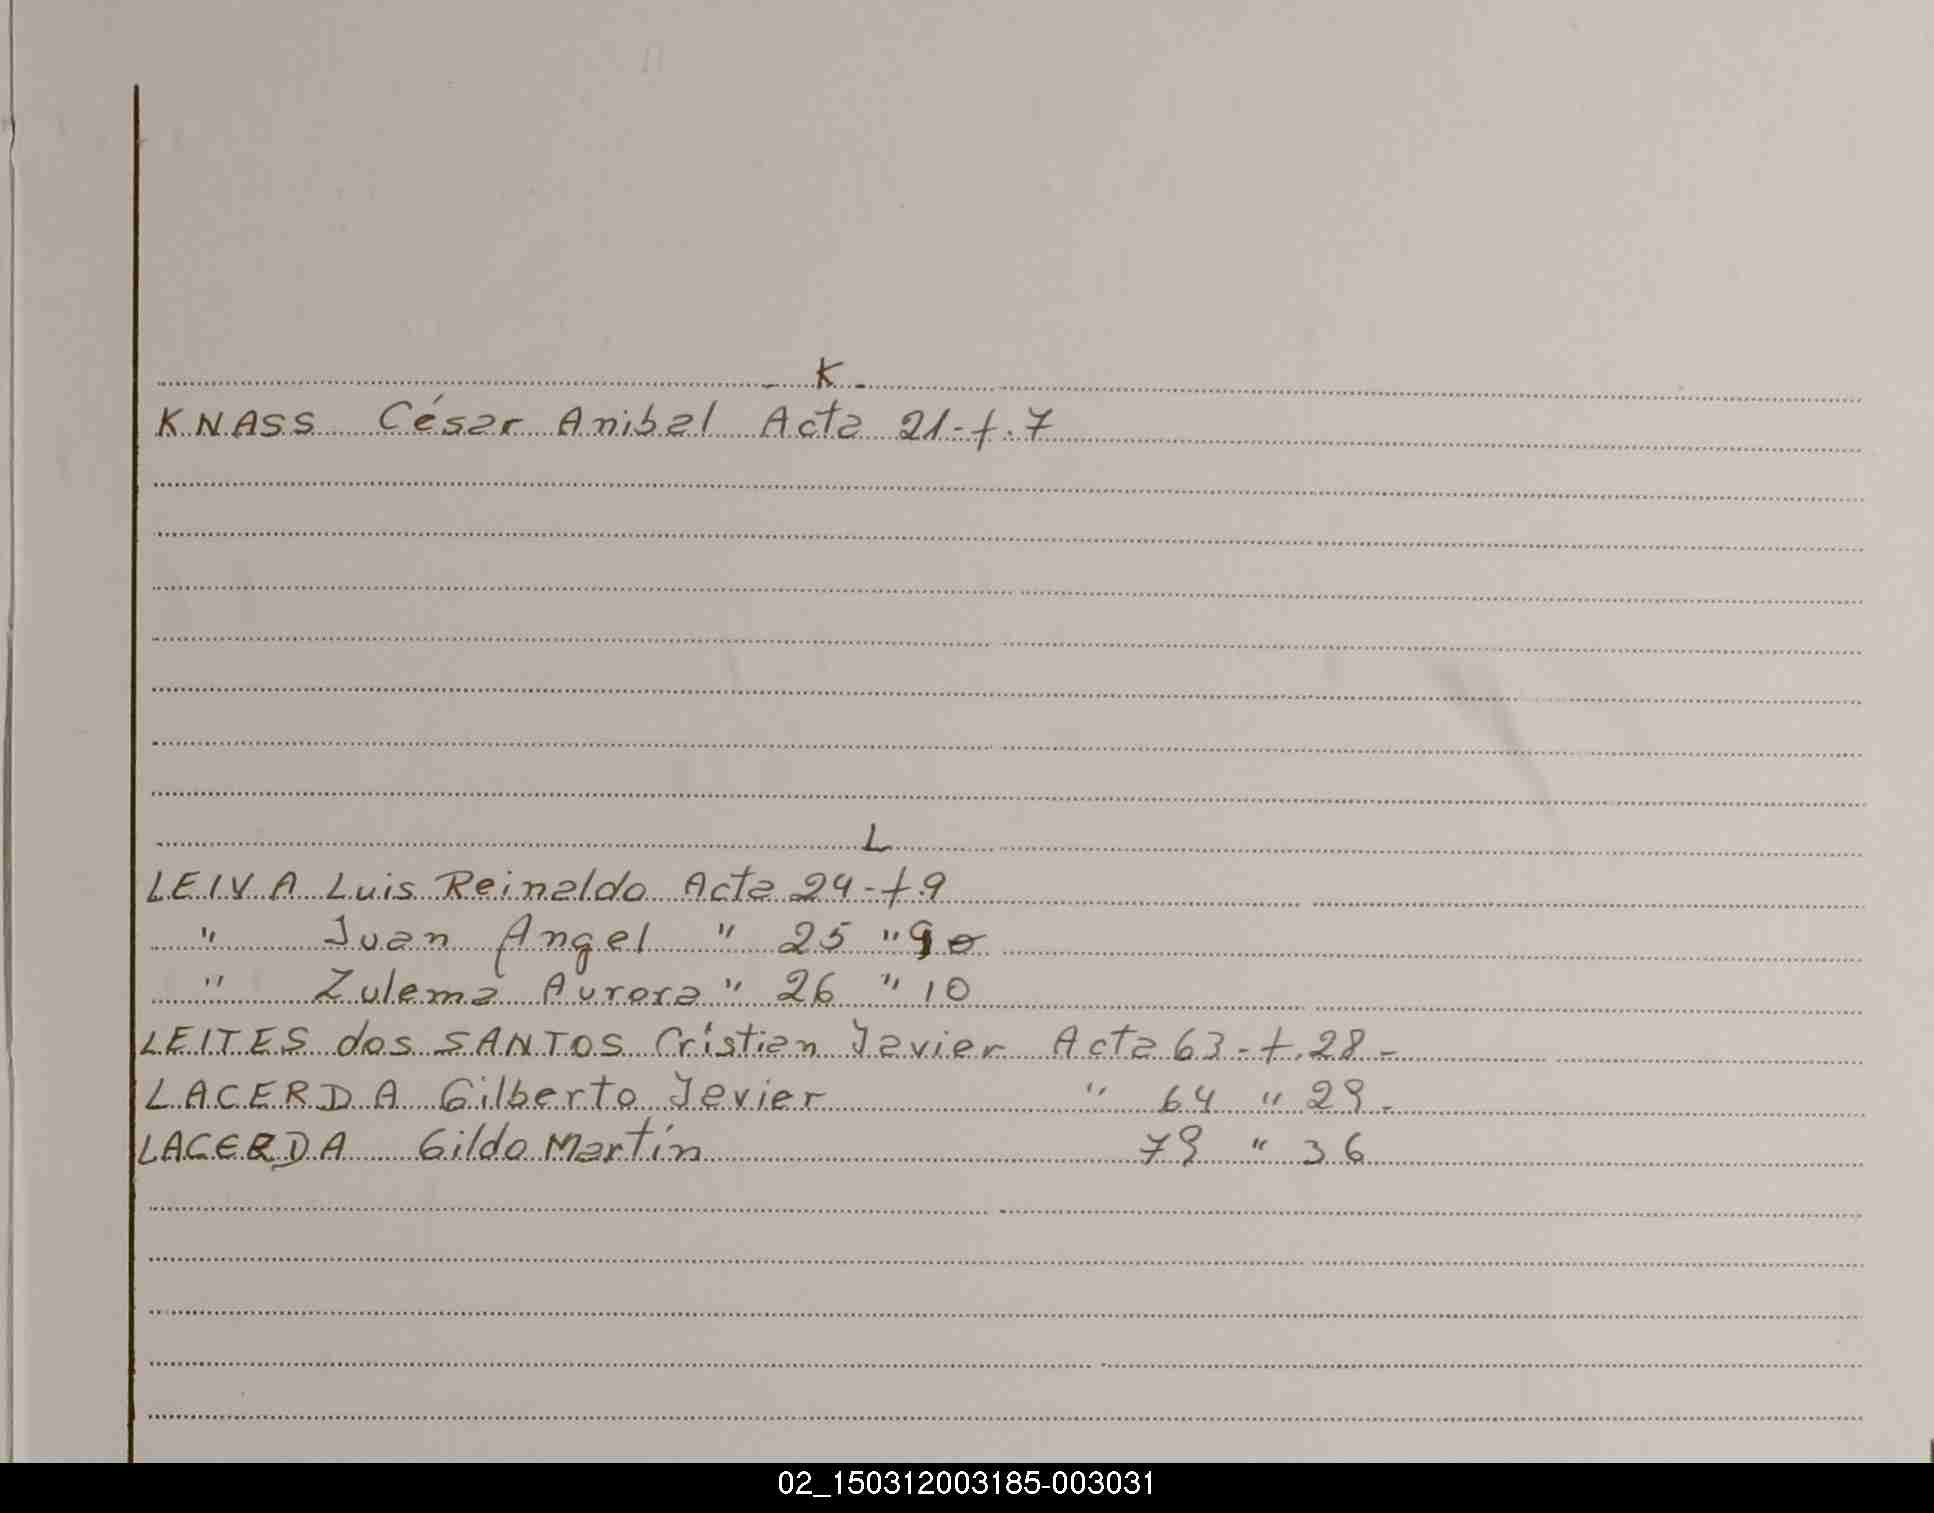 - K -
KNASS César Anibal Acta 21-f.7
L
LEIVA Luis Reinaldo Acta 24-f.9
" Juan Angel " 25 " 9
" Zulema Aurora " 26 " 10
LEITES dos SANTOS Cristian Javier Acta 63-f.28-
LACERDA Gilberto Javier " 64 " 29-
LACERDA Gildo Martín 79 " 36
02_150312003185-003031